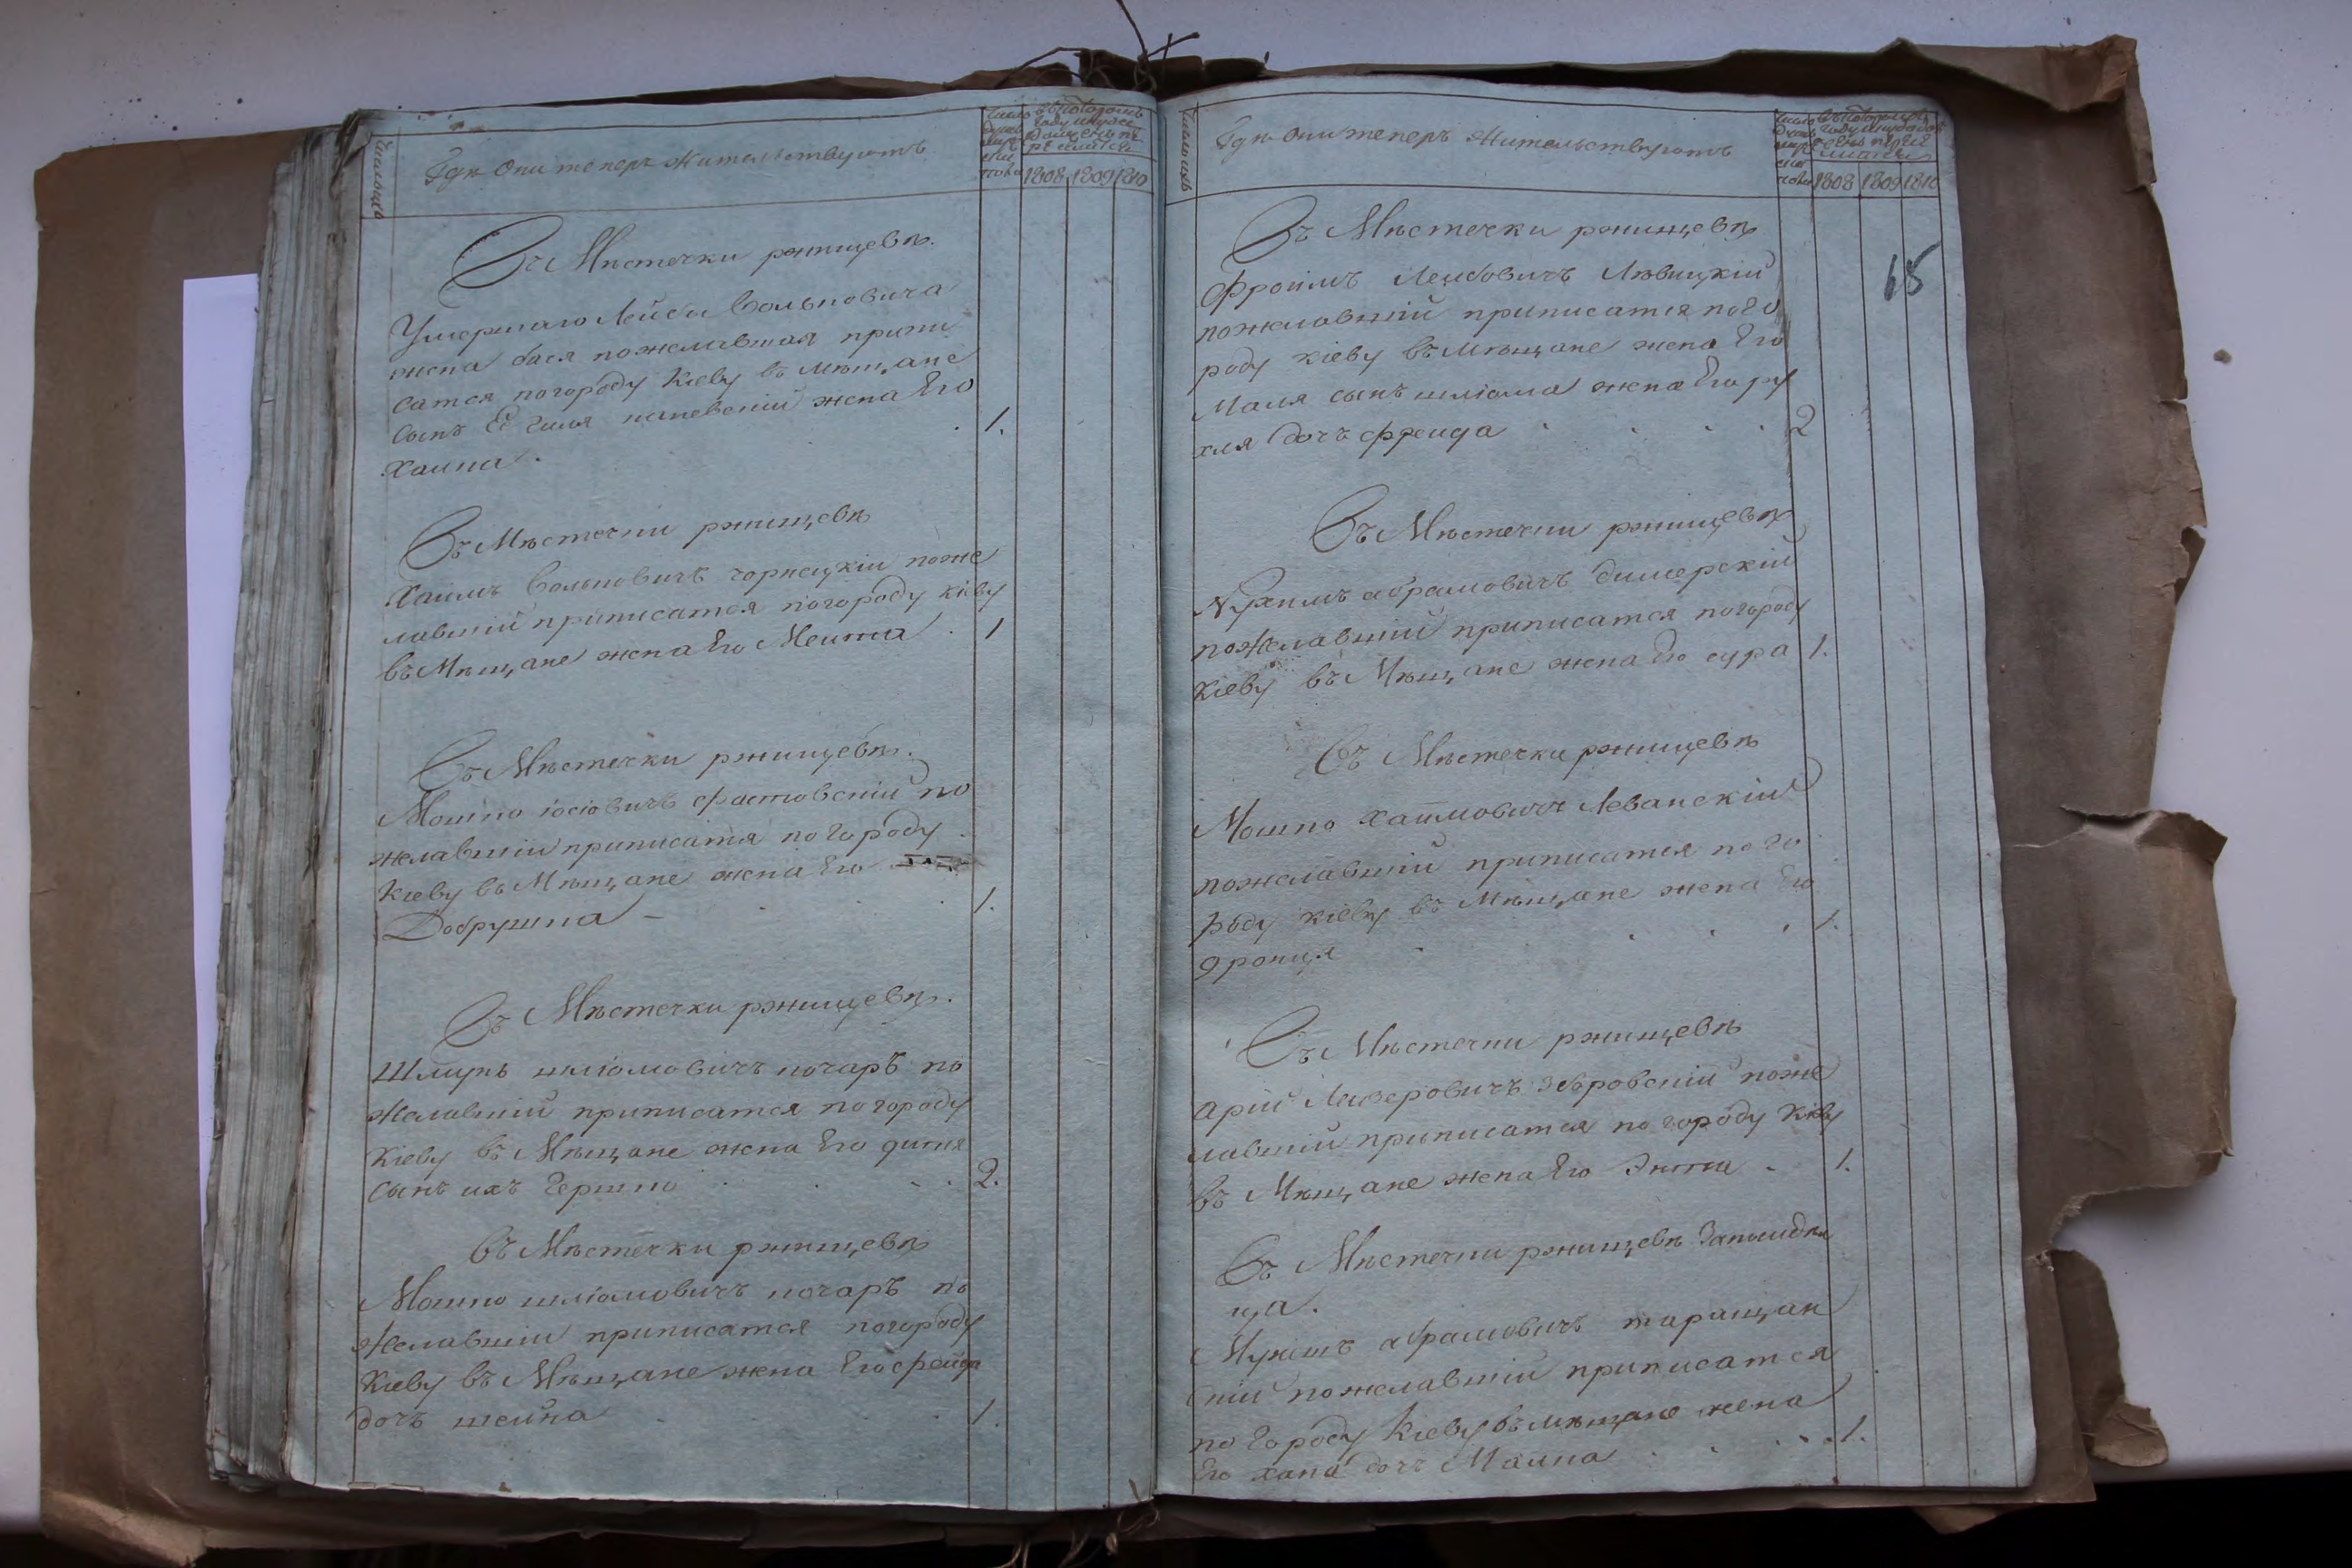 Гдѣ они теперь жительствуютъ
1808 1809 1810
Въ Мѣстечки ржищевѣ.
Умершаго Лейбы Вольковича
жена бася пожелавшая припи
сатся погороду Кіеву въ мѣщане
сынъ Ее гиля каневскій жена Его
Хаика . 1.
Въ Мѣстечки ржищевѣ
Хаимъ Вольковичъ чорнецкій поже
лавшій приписатся погороду кіеву
въ Мѣщане жена Его Меита . 1
Въ Мѣстечки ржищевѣ.
Мошко іосіовичъ фастовскій по
желавшій приписатся погороду
Кіеву въ Мѣщане жена Его
Добрушка - 1.
Въ Мѣстечки ржищевѣ.
Шмуль шліомовичъ кочаръ по
желавшій приписатся погороду
Кіеву въ Мѣщане жена Его
сынъ ихъ Гершко 2.
въ Мѣстечки ржищевѣ
Мошко шліомовичъ кочаръ по
желавшій приписатся погороду
Кіеву въ Мѣщане жена Его фрейда
дочъ шейка 1.
Гдѣ они теперь жительствуютъ
1808 1809 1810
65
Въ Мѣстечки ржищевѣ
Фроимъ Лейбовичъ Лѣвицкій
пожелавшій приписатся пого
роду кіеву въ мѣщане жена Его
Маля сынъ шліома жена Его ру
хля дочъ фрейда 2
Въ Мѣстечки ржищевѣ
Нухимъ абрамовичъ димерскій
пожелавшій приписатся погороду
Кіеву въ Мѣщане жена Его сура 1.
Въ Мѣстечки ржищевѣ
Мошко хаимовичъ Леванскій
пожелавшій приписатся пого
роду кіеву въ Мѣщане жена Его
1.
Въ Мѣстечки ржищевѣ
арій Лейзеровичъ збаровскій поже
лавшій приписатся погороду Кіеву
въ Мѣщане жена Его Энта . 1.
Въ Мѣстечки ржищевѣ
ца.
абрамовичъ таращан
скій пожелавшій приписатся
погороду Кіеву въ мѣщане жена
Его хана дочъ Малка 1.